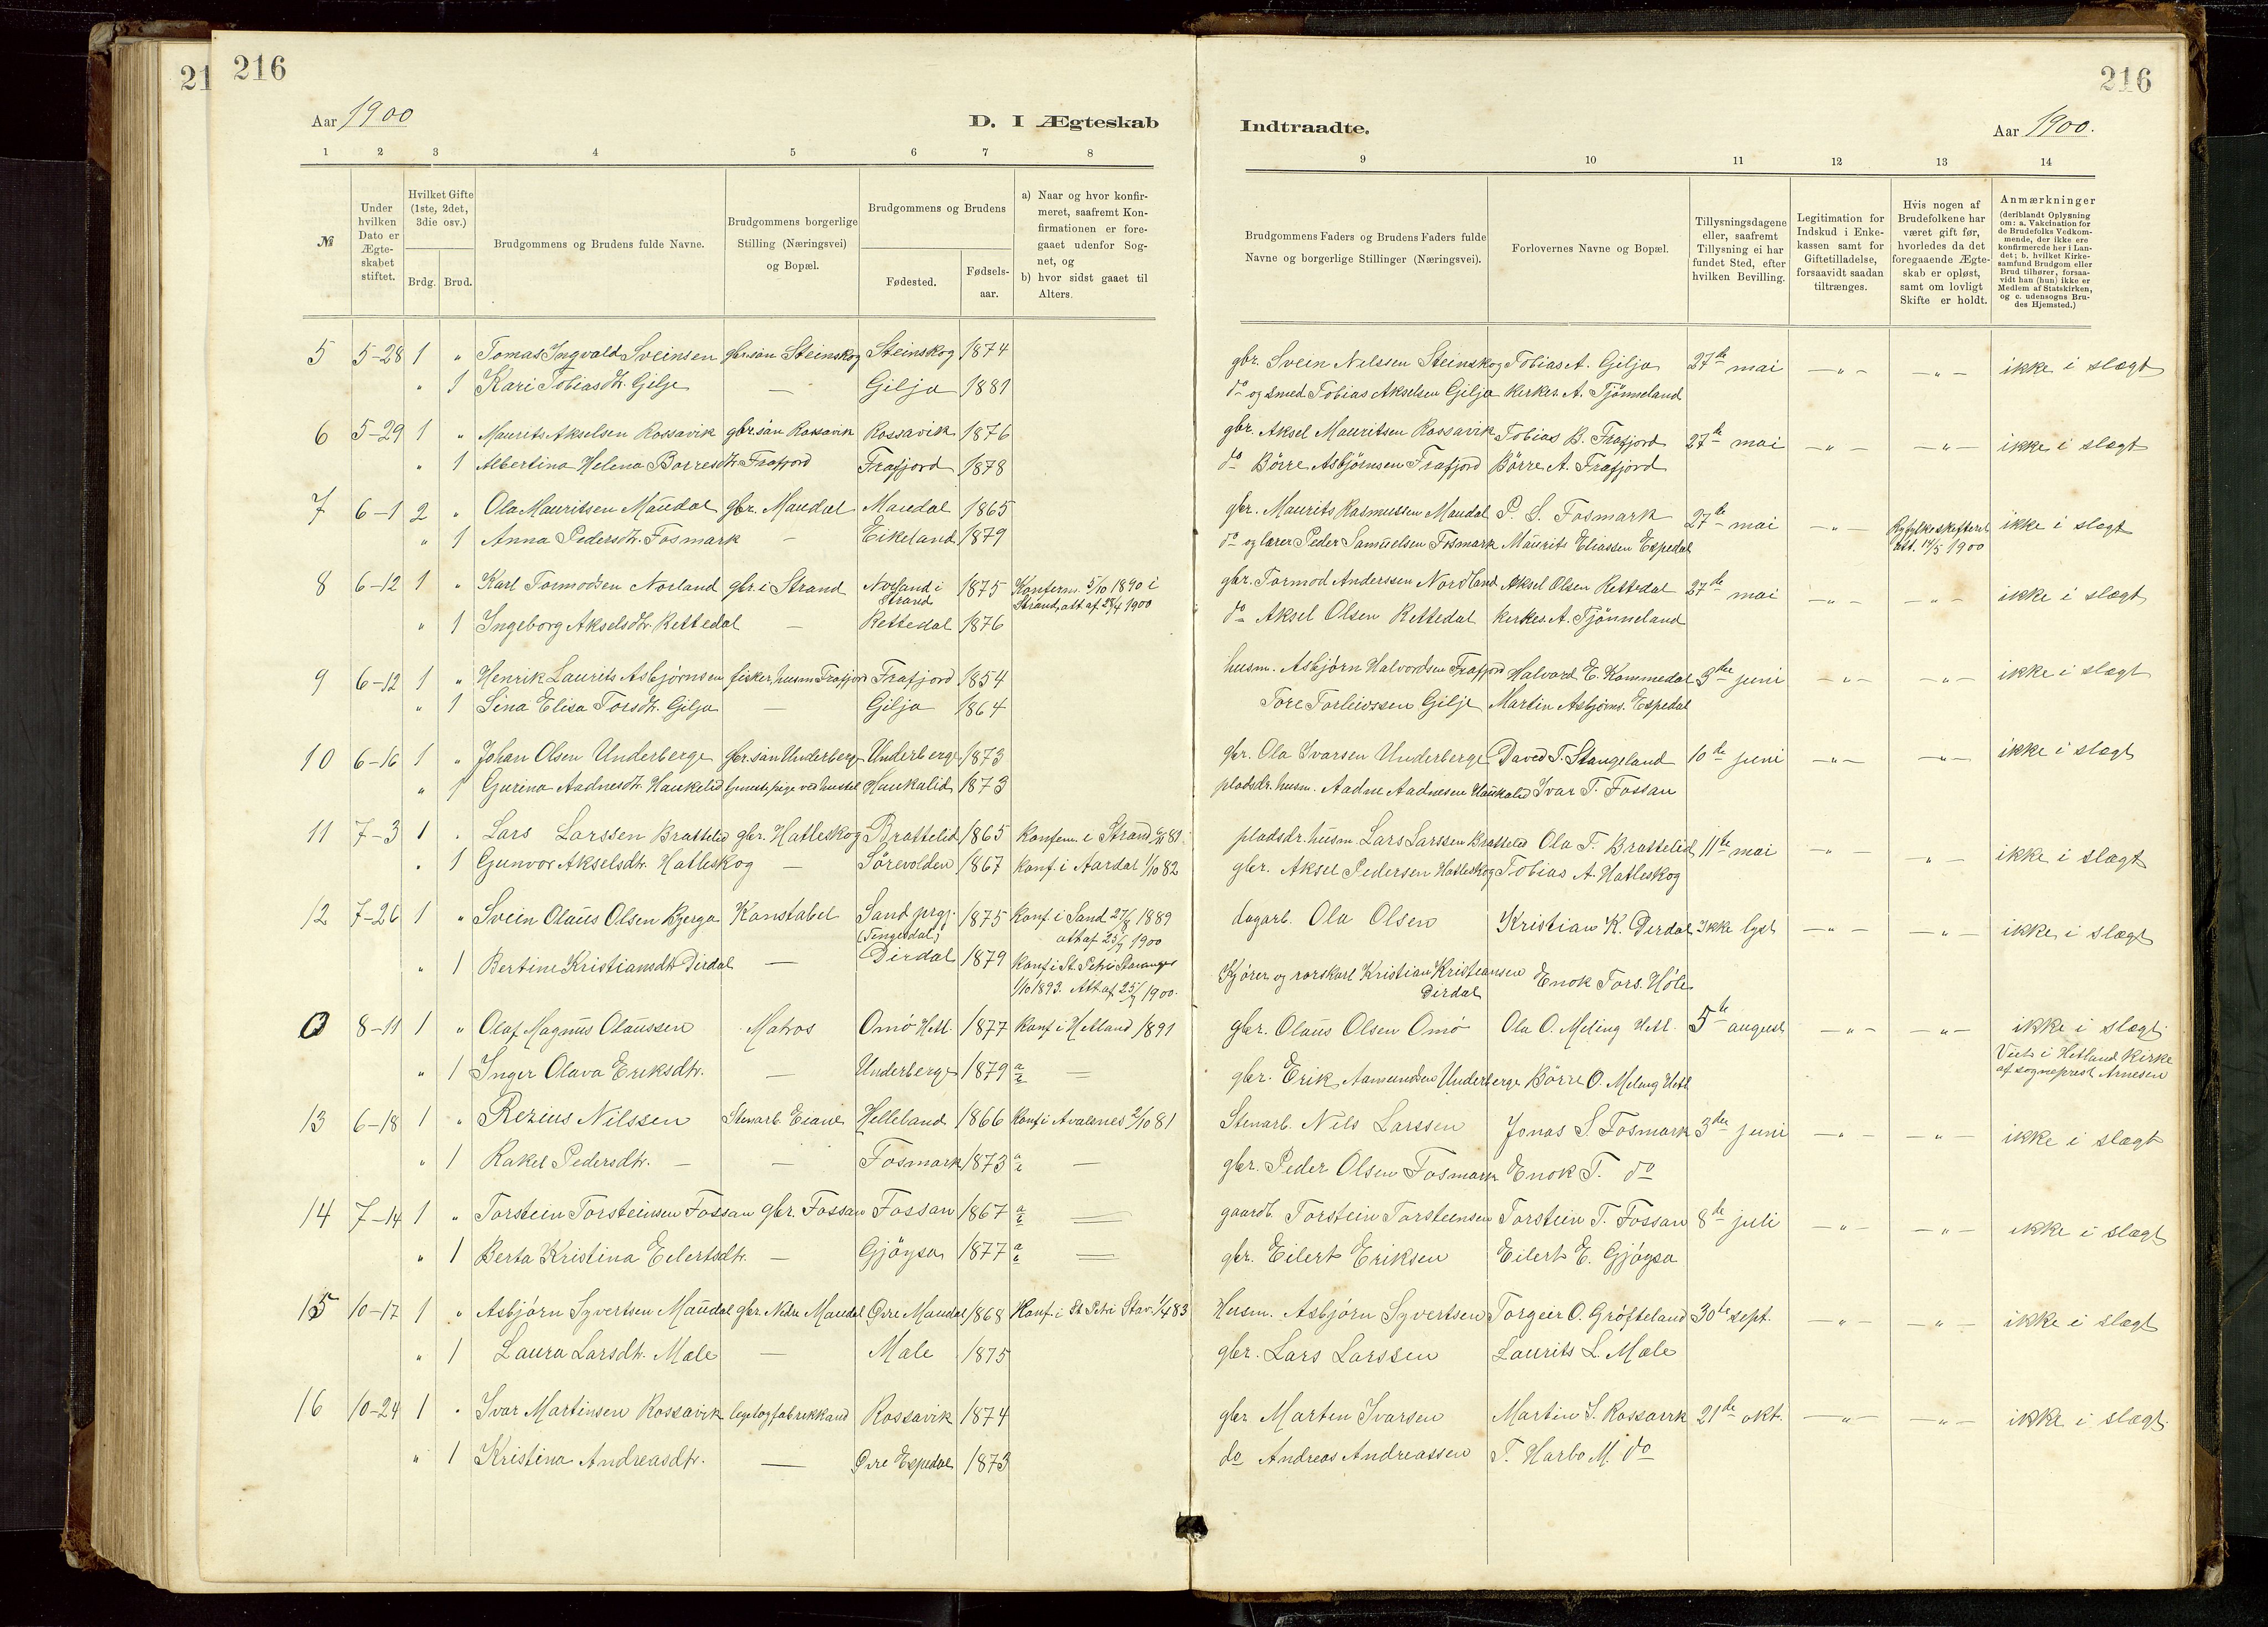 21
216
216
Aar 1900
D. I Ægteskab
Indtraadte.
Aar 1900.
1 2 3 4 5 6 7 8
9 10 11 12 13 14
№
Under hvilken Dato er Ægteskabet stiftet.
Hvilket Gifte (1ste, 2det, 3die osv.)
Brdg. Brud.
Brudgommens og Brudens fulde Navne.
Brudgommens borgerlige Stilling (Næringsvei) og Bopæl.
Brudgommens og Brudens
Fødested.
Fødsels-aar.
a) Naar og hvor konfirmeret, saafremt Konfirmationen er foregaaet udenfor Sognet, og
b) hvor sidst gaaet til Alters.
Brudgommens Faders og Brudens Faders fulde Navne og borgerlige Stillinger (Næringsvei).
Forlovernes Navne og Bopæl.
Tillysningsdagene eller, saafremt Tillysning ei har fundet Sted, efter hvilken Bevilling.
Legitimation for Indskud i Enkekassen samt for Giftetilladelse, forsaavidt saadan tiltrænges.
Hvis nogen af Brudefolkene har været gift før, hvorledes da det foregaaende Ægteskab er opløst, samt om lovligt Skifte er holdt.
Anmærkninger
(deriblandt Oplysning om: a. Vakcination for de Brudefolks Vedkommende, der ikke ere konfirmerede her i Landet; b. hvilket Kirkesamfund Brudgom eller Brud tilhører, forsaavidt han (hun) ikke er Medlem af Statskirken, og c. udensogns Brudes Hjemsted.)
5 5-28 1 " Tomas Ingvald Sveinsen gbr.søn Steinskog Steinskog 1874 gbr. Svein Nilssen Steinskog Tobias A. Gilja 27de mai — " — — " — ikke i slægt
" 1 Kari Tobiasdtr. Gilje — Gilja 1881 do og smed Tobias Akselsen Gilja Kirkes. A. Tjönneland
6 5-29 1 " Maurits Akselsen Rossavik gbr.søn Rossavik Rossavik 1876 gbr. Aksel Mauritsen Rossavik Tobias B. Frafjord 27de mai — " — — " — ikke i slægt
" 1 Albertina Helena Börresdtr. Frafjord Frafjord 1878 do Börre Asbjørnsen Frafjord Börre A. Frafjord
7 6-1 2 " Ola Mauritsen Maudal gbr. Maudal Maudal 1865 gbr. Maurits Rasmussen Maudal P. S. Fosmark 27de mai — " — Ryfylke skifteret att. 14/5 1900 ikke i slægt
" 1 Anna Pedersdtr. Fosmark — Eikeland 1879 do og lærer Peder Samuelsen Fosmark Maurits Eliassen Espedal
8 6-12 1 " Karl Tormodsen Norland gbr. i Strand Norland i Strand 1875 Konferm. 5/10 1890 i Strand, att af 28/4 1900 gbr. Tormod Anderssen Nordland Aksel Olsen Rettedal 27de mai — " — — " — ikke i slægt
" 1 Ingeborg Akselsdtr. Rettedal — Rettedal 1876 do Aksel Olsen Rettedal Kirkes. A. Tjönneland
9 6-12 1 " Henrik Laurits Asbjørnsen fisker, husm Frafjord Frafjord 1854 husm. Asbjørn Halvordsen Frafjord Halvard E. Kommedal 3die juni — " — — " — ikke i slægt
" 1 Sina Elisa Toresdtr. Gilja — Gilja 1864 Tore Torleivssen Gilje Martin Asbjørns. Espedal
10 6-16 1 " Johan Olsen Underberge gbr.søn Underberge Underberge 1873 gbr. Ola Ivarsen Underberge David T. Stangeland 10de juni — " — — " — ikke i slægt
" 1 Gurina Aadnesdtr. Haukelid tjenestepige ved hustel Haukalid 1873 pladsdr. husm. Aadne Aadnesen Haukalid Ivar T. Fossan
11 7-3 1 " Lars Larssen Brattelid gbr. Hatleskog Brattelid 1865 Konferm. i Strand 81 pladsdr. husm. Lars Larssen Brattelid Ola T. Brattelid 11te mai — " — — " — ikke i slægt
" 1 Gunvor Akselsdtr. Hatleskog — Sörevolden 1867 Konf. i Aardal 1/10 82 gbr. Aksel Pedersen Hatleskog Tobias A. Hatleskog
12 7-26 1 " Svein Olaus Olsen Bjerga Konstabel Sand prgj. (Tengesdal) 1875 Konf i Sand 27/8 1889 att af 25/7 1900 dagarb. Ola Olsen Kristian K. Dirdal Ikke lyst — " — — " — ikke i slægt
" 1 Bertine Kristiansdtr Dirdal — Dirdal 1879 Konf i St. Petri Stavanger 1/10 1893. Att. af 25/7 1900. Kjører og rorskarl Kristian Kristiansen Dirdal Enok Tors. Høle
0 8-11 1 " Olaf Magnus Olaussen Matros Omö Hetl. 1877 Konf i Hetland 1891 gbr. Olaus Olsen Omö Ola O. Meling Hetl. 5te august — " — — " — ikke i slægt.
" 1 Inger Olava Eriksdtr. — Underberge 1879 — gbr. Erik Aamundsen Underberge Börre O. Meling Hetl Viet i Hetland Kirke af sogneprest Arnesen
13 6-18 1 " Rezius Nilssen Stenarb. Eiane Helleland 1866 Konf i Avalsnes 2/10 81 Stenarb. Nils Larssen Jonas S. Fosmark 3die juni — " — — " — ikke i slægt
" 1 Rakel Pedersdtr. — — Fosmark 1873 — gbr. Peder Olsen Fosmark Enok T. do
14 7-14 1 " Torstein Torsteinsen Fossan gbr. Fossan Fossan 1867 gaardb. Torstein Torsteinsen Torstein T. Fossan 8de juli — " — — " — ikke i slægt
" 1 Berta Kristina Eilertsdtr. — Gjöysa 1877 gbr. Eilert Eriksen Eilert E. Gjöysa
15 10-17 1 " Asbjörn Syvertsen Maudal gbr. Nedre Maudal Øvre Maudal 1868 Konf. i St Petri Stav. 1/4 83 Husm. Asbjörn Syvertsen Torgeir O. Gröfteland 30te sept. — " — — " — ikke i slægt
" 1 Laura Larsdtr. Mæle — Mæle 1875 gbr. Lars Larssen Laurits L. Mæle
16 10-24 1 " Ivar Martinsen Rossavik Rossavik 1874 gbr Marten Ivarsen Martin I. Rossavik 21de okt. — " — — " — ikke i slægt.
" 1 Kristina Andreasdtr. — Øvre Espedal 1873 do Andreas Andreassen T. Harbo M. do